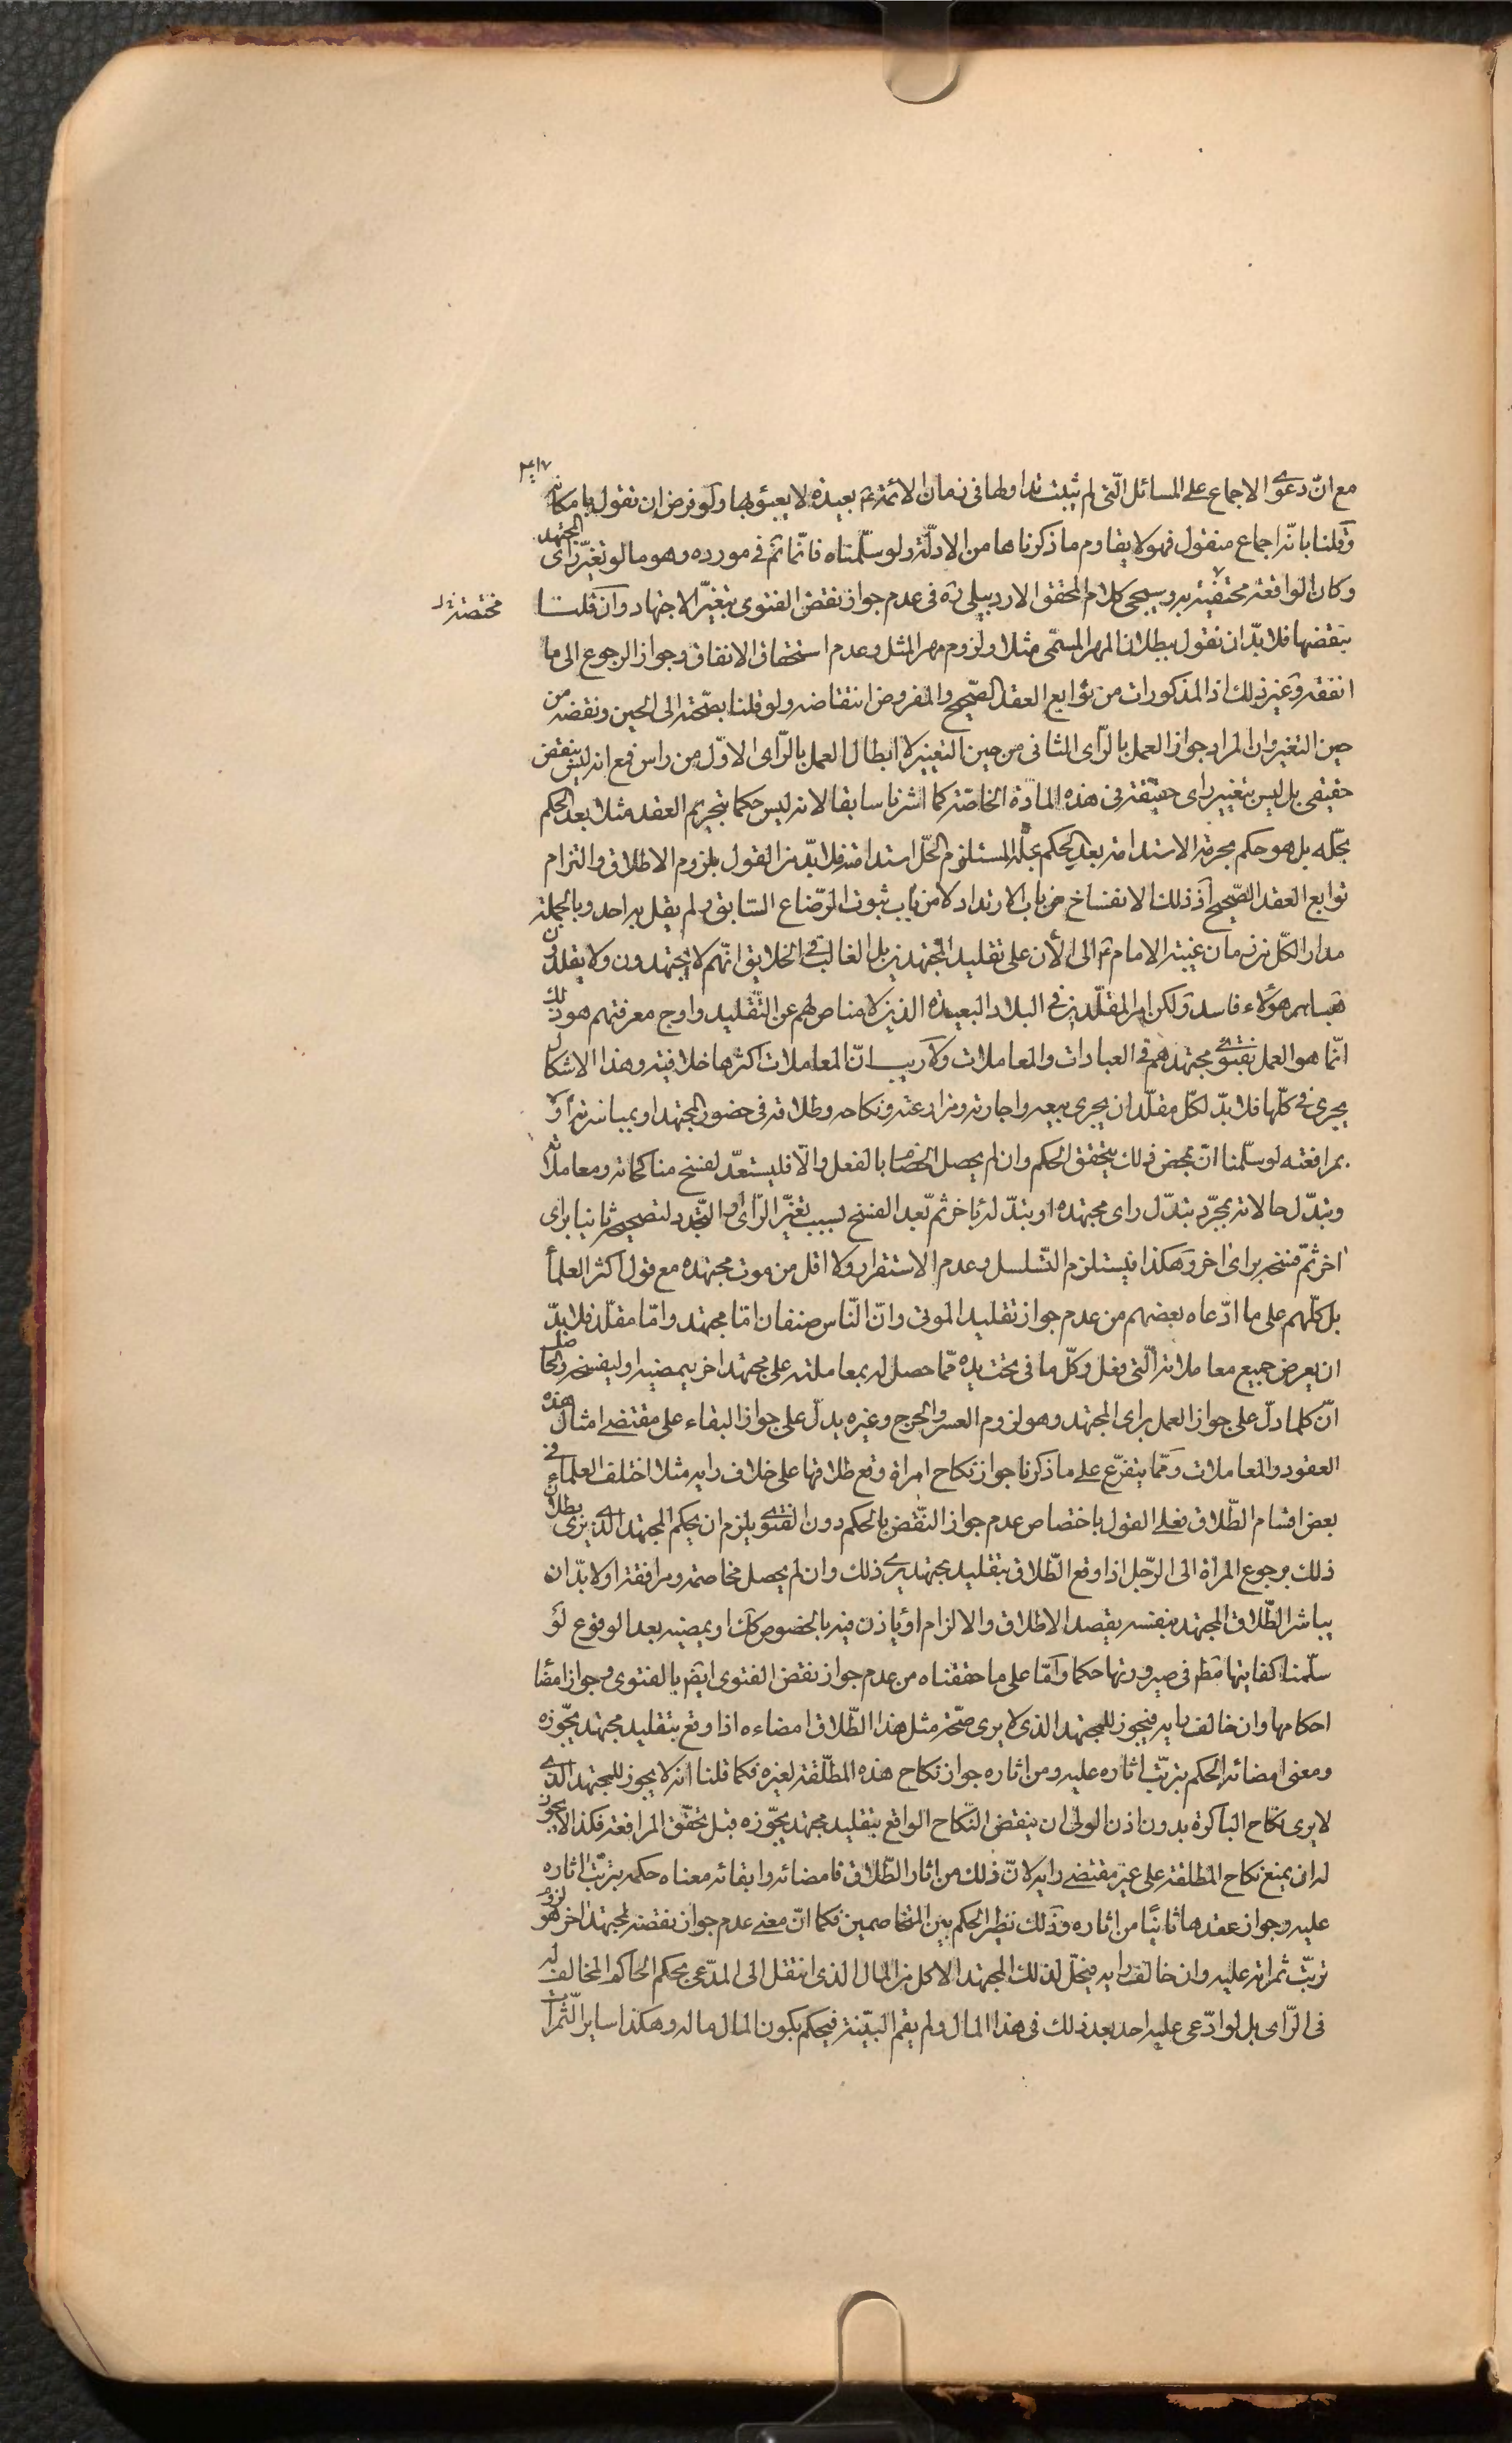 ٤١٧
مع انّ دعوى الاجماع على المسائل الّتى لم يثبت تداولها فى زمان الائمة ع بعيدة لا يعبؤ بها ولو فرض ان نقول بامكانه
وقلنا بانّه اجماع منقول فهو لا يقاوم ما ذكرناها من الادلّة ولو سلّمناه فانّما تمّ فى مورده وهو ما لو تغيّر راى المجتهد
وكان الواقعة مختفية به وسيجئ كلام المحقق الاردبيلى ره فى عدم جواز نقض الفتوى بتغيّر الاجتهاد وان قلت
مختصة خ ل
بنقضها فلا بدّ ان نقول ببطلان المهر المسمّى مثلا ولزوم مهر المثل وعدم استحقاق الانفاق وجواز الرجوع الى ما
انفقه وغير ذلك اذ المذكورات من توابع العقد الصّحيح والمفروض انتقاضه ولو قلنا بصّحته الى الحين ونقضه من
حين التغير وان المراد جواز العمل بالرّاى الثانى من حين التغيير لا ابطال العمل بالرّاى الاوّل من راس فمع انه ليس بنقض
حقيقى بل ليس بتغيير راى حقيقة فى هذه المادّة الخاصّة كما اشرنا سابقا لانه ليس حكما بتحريم العقد مثلا بعد الحكم
بحّله بل هو حكم بحرمة الاستدامة بعد الحكم بحلّه المستلزم لحلّ استدامته فلا بدّ من القول بلزوم الاطلاق والتزام
توابع العقد الصّحيح اذ ذلك الانفساخ من باب الارتداد لا من باب ثبوت الرّضاع السّابق ولم يقل به احد وبالجملة
مدار الكّل من زمان غيبة الامام ع الى الأن على تقليد المجتهدين بل الغالب فى الخلايق انّهم لا يجتهدون ولا يقلدون
فاساس هؤلاء فاسد ولكن امر المقلّدين فى البلاد البعيدة الذين لا مناص لهم عن التّقليد واوج معرفتهم هو ذلك
انّما هو العمل بفتوى مجتهدهم فى العبادات والمعاملات ولا ريب انّ المعاملات اكثرها خلافية وهذا الاشكال
يجرى فى كلّها فلا بدّ لكلّ مقلّد ان يجرى بيعه واجارته ومزارعته ونكاحه وطلاقه فى حضور المجتهد او بمباشرته او لا
بمرافعته لو سلّمنا انّ بمحض ذلك يتحقق الحكم وان لم يحصل الخصام بالفعل والّا فليستعدّ لفسخ مناكحاته ومعاملاته
وتبدّل حالاته بمجرّد تبدّل راى مجتهده او تبدّله باخر ثم بعد الفسخ بسبب تغيّر الرّاى او التّجدد لتصحيحه ثانيا براى
اخر ثمّ فسخه براى اخر وهكذا فيستلزم التّسلسل وعدم الاستقرار ولا اقل من موت مجتهده مع قول اكثر العلمأ
بل كلّهم على ما ادّعاه بعضهم من عدم جواز تقليد الموتى وانّ النّاس صنفان امّا مجتهد وامّا مقلّد فلا بدّ
ان يعرض جميع معاملاته الّتى فعل وكلّ ما فى تحت يده ممّا حصل له بمعاملته على مجتهد اخر يمضيه او ليفسخه والحاصل
انّ كلما دلّ على جواز العمل براى المجتهد وهو لزوم العسر والحرج وغيره يدلّ على جواز البقاء على مقتضى امثال هذه
العقود والمعاملات وممّا يتفرّع على ما ذكرنا جواز نكاح امراة وقع طلاقها على خلاف رايه مثلا اختلف العلماء فى
بعض اقسام الطّلاق فعلى القول باختصاص عدم جواز النّقض بالحكم دون الفتوى يلزم ان يحكم المجتهد الّذى يرى بطلان
ذلك برجوع المراة الى الرّجل اذا وقع الطّلاق بتقليد مجتهد يرى ذلك وان لم يحصل مخاصمة ومرافعة او لا بدّ ان
يباشر الطّلاق المجتهد بنفسه بقصد الاطلاق والالزام او ياذن فيه بالخصوص كك او يمضيه بعد الوقوع لو
سلّمنا كفايتها مط فى صيرورتها حكما وامّا على ما حققناه من عدم جواز نقض الفتوى ايضا بالفتوى وجواز امضا
احكامها وان خالف رايه فيجوز للمجتهد الذى لا يرى صحّة مثل هذا الطّلاق امضاءه اذا وقع بتقليد مجتهد يجّوزه
ومعنى امضائه الحكم بترتّب اثاره عليه ومن اثاره جواز نكاح هذه المطلّقة لغيره فكما قلنا انه لا يجوز للمجتهد الّذى
لا يرى نكاح الباكرة بدون اذن الولى ان ينقض النّكاح الواقع بتقليد مجتهد يجّوزه قبل تحقّق المرافعة فكذا لا يجوز
له ان يمنع نكاح المطلقة على غير مقتضى رايه لانّ ذلك من اثار الطّلاق فامضائه وابقائه معناه حكمه بترتّب اثاره
عليه وجواز عقدها ثانيًا من اثاره وذلك نظير الحكم بين المتخاصمين فكما انّ معنى عدم جواز نقضه لمجتهد اخر هو لزوم
ترتّب ثمراته عليه وان خالف رايه فيحلّ لذلك المجتهد الاكل من المال الذى انتقل الى المدّعى بحكم الحاكم المخالف له
فى الرّاى بل لو ادّعى عليه احد بعد ذلك فى هذا المال ولم يقم البيّنة فيحكم بكون المال ماله وهكذا ساير الّثمرات